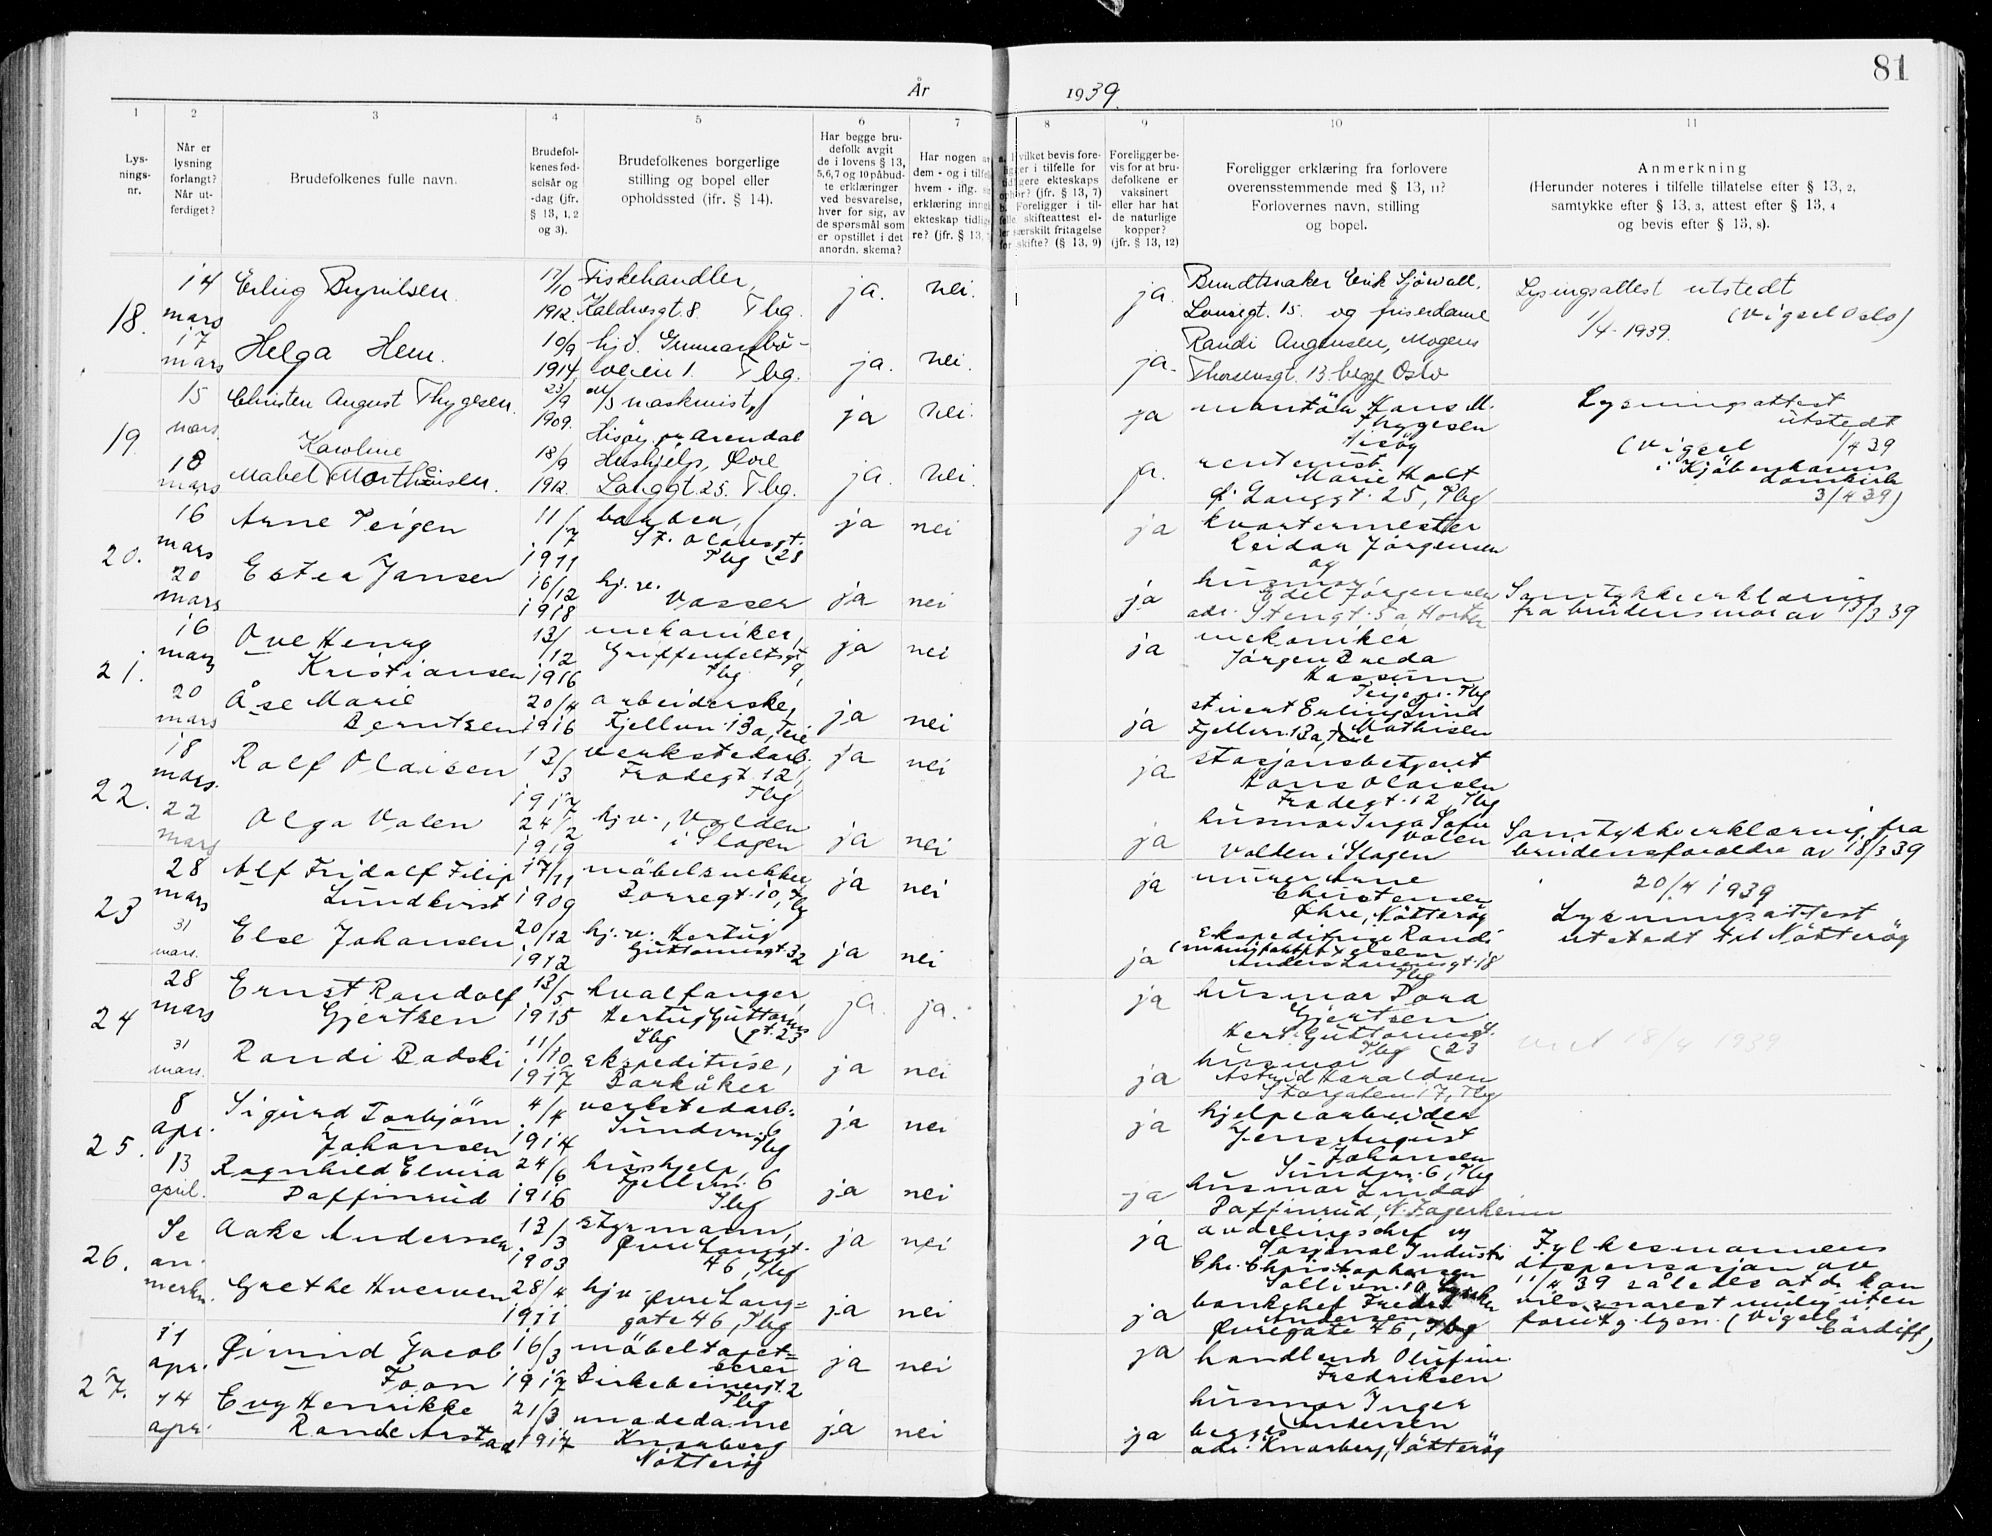 81
År 1939.
1 2 3 4 5 6 7 8 9 10 11
Lysningsnr.
Når er lysning forlangt? Når utferdiget?
Brudefolkenes fulle navn.
Brudefolkenes fødselsår og -dag (jfr. § 13, 1, 2 og 3).
Brudefolkenes borgerlige stilling og bopel eller opholdssted (jfr. § 14).
Har begge brudefolk avgit de i lovens § 13, 5, 6, 7 og 10 påbudte erklæringer ved besvarelse, hver for sig, av de spørsmål som er opstillet i det anordn. skema?
Har nogen
dem - og i
hvem - iflg.
erklæring
ekteskap
re? (jfr. § 13,
Foreligger bevis for at brudefolkene er vaksinert eller har hat de naturlige kopper? (jfr. § 13, 12)
Foreligger erklæring fra forlovere overensstemmende med § 13, 11? Forlovernes navn, stilling og bopel.
Anmerkning (Herunder noteres i tilfelle tillatelse efter § 13, 2, samtykke efter § 13, 3, attest efter § 13, 4 og bevis efter § 13, 8).
18.
14 mars
17 mars
Erling
17/10 1912
Fiskehandler,
8. Tbg.
ja. nei. ja
Erik Sjøwall,
15. og friserdame
Helga Hem.
10/9 1914
hj. v.
1. Tbg.
ja. nei. ja.
Randi Mogens
13. begge Oslo
Lysingsattest utstedt
1/4 - 1939. (Vigsel Oslo)
19.
15 mars
18 mars
Christen August Thygesen.
23/9 1909.
m/s maskinist,
Hisøy pr Arendal
ja nei. ja
Hans M.
Thygesen
Hisøy
Karoline
Mabel Morthensen.
18/9 1912.
Hushjelp, Øvre
Langgt. 25. Tbg.
ja. nei. ja.
rentenist
Marie Holt
Ø. Langgt. 25, Tbg
Lysningsattest
utstedt
1/4 39
(Vigsel
i Kjøbenhavns
domkirke
3/4 39)
20.
16 mars
20 mars
Arne Teigen
11/7 1911
St. Olavsgt.
Tbg 28
ja nei ja
kvartermester
Reidar Jørgensen
og
Ester Jansen
16/12 1918
hj. v.
Vasser
ja nei ja
husmor
Edel Jørgensen
adr. Stengt. 5a Horten
Samtykkeerklæring
fra brudens mor av 13/3 39
21.
16 mars
20 mars
Ove Henry
Kristiansen
13/12 1916
mekaniker,
Griffenfeltsgt
9, Tbg
ja nei ja
mekaniker
Jørgen Breda
Hassum
Teigen. Tbg
Åse Marie
Berntsen
20/4 1916
arbeiderske,
Fjellvn. 13a, Teie
ja nei ja
stuert Erling Lund
Mathisen
Fjellvn. 13a, Teie
22.
18 mars.
22 mars
Rolf Olaisen
13/3 1917
verkstedarb.
Frodegt 12,
Tbg
ja nei ja
stasjonsbetjent
Hans Olaisen
Frodegt. 12, Tbg
Olga Valen
24/2 1919
hj v., Volden
i Slagen
ja nei ja
husmor Inga Sofie
Valen
Volden i Slagen
Samtykkeerklæring fra
brudens foreldre av 18/3 39
23
28 mars
31 mars.
Alf Fridolf Filip
Lundkvist
17/11 1909
møbelsnekker
Borregt. 10, Tbg
ja nei ja
murer Arne
Christensen
Øhre, Nøtterøy
Else Johansen
20/12 1912
hj. v. Hertug
Guttormsgt. 32
ja nei ja
ekspeditrise Randi
18
Tbg
20/4 1939
Lysningsattest
utstedt til Nøtterøy
24
28 mars
31 mars.
Ernst Randolf
Gjertsen
13/5 1915
hvalfanger,
Hertug Guttorms
gt. 23 Tbg
ja. ja. ja
husmor Dora
Gjertsen
Hert. Guttormsgt.
23 Tbg
Randi Badski
11/10 1917
ekspeditrise,
Barkåker
ja nei ja
husmor
Astrid Haraldsen
Storgaten 17, Tbg
18/4 1939
25.
8 apr.
13 april.
Sigurd Torbjørn
Johansen
4/4 1914
verkstedarb.
Sundvn. 6
Tbg
ja nei ja
hjelpearbeider
Jens August
Johansen
Sundvn. 6, Tbg
Ragnhild Elvira
Paffinrud
24/6 1916
hushjelp
Fjellvn. 6
Tbg
ja nei ja
husmor Linda
Paffinrud, N. Fagerheim
26.
Se anmerkn.
Aake Andersen
13/3 1903
styrmann,
Øvre Langgt.
46, Tbg
ja nei ja
avdelingschef
Chr. Christophersen
Sollivn. 10
Grethe Hverven
28/4 1911
hj v.
Øvre Langgate 46, Tbg
ja nei ja
bankchef Fredrik
Andersen
Øvregate 46, Tbg
Fylkesmannens
dispensasjon av
11/4 39 således at de kan
vies snarest mulig uten
forutg. lysn. (Vigsel i
Cardiff)
27.
11 apr.
14 apr.
Øivind Jacob
Foon
16/3 1917
møbeltapetserer
Birkebeinergt. 2
Tbg
ja nei ja
handlende Olufine
Fredriksen
Evy Henrikke
Rande Arstad
21/3 1917
motedame
Knarberg
Nøtterøy
ja nei ja
husmor Inger
Andersen
begges
adr. Knarberg, Nøtterøy